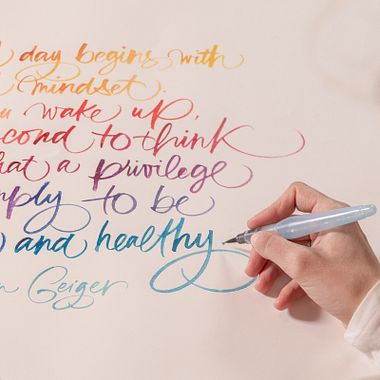 day begins with
mindset.
u wake up,
cond to think
hat a privilege
mply to be
and healthy
n Geiger